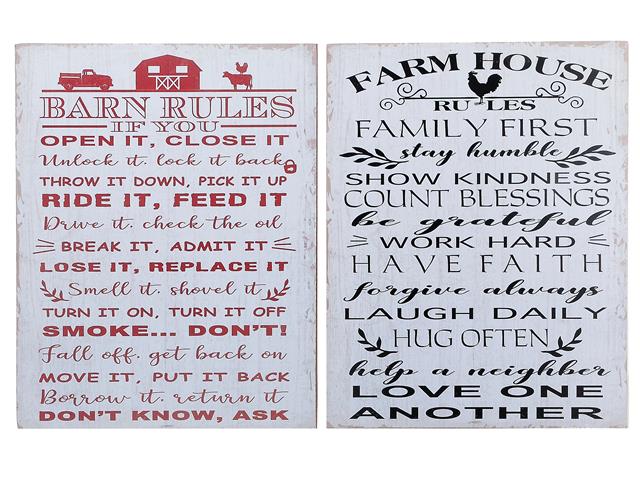 BARN RULES
IF YOU
OPEN IT, CLOSE IT
Unlock it. lock it back
THROW IT DOWN, PICK IT UP
RIDE IT, FEED IT
Drive it. check the oil
BREAK IT, ADMIT IT
LOSE IT, REPLACE IT
Smell it. shovel it
TURN IT ON, TURN IT OFF
SMOKE... DON'T!
Fall off. get back on
MOVE IT, PUT IT BACK
Borrow it. return it
DON'T KNOW, ASK
FARM HOUSE
RULES
FAMILY FIRST
stay humble
SHOW KINDNESS
COUNT BLESSINGS
be grateful
WORK HARD
HAVE FAITH
forgive always
LAUGH DAILY
HUG OFTEN
help a neighber
LOVE ONE
ANOTHER